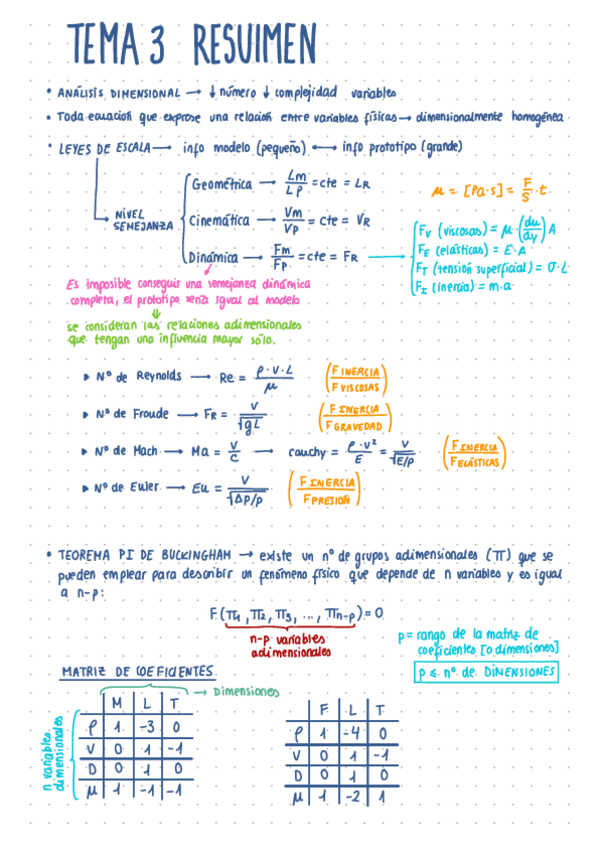 TEMA 3 RESUIMEN
• ANÁLISIS DIMENSIONAL → ↓ número ↓ complejidad variables
• Toda ecuación que exprese una relación entre variables físicas → dimensionalmente homogénea
• LEYES DE ESCALA → info modelo (pequeño) ↔ info prototipo (grande)
NIVEL SEMEJANZA
Geométrica → Lm/Lp = cte = LR
Cinemática → Vm/Vp = cte = VR
Dinámica → Fm/Fp = cte = FR
μ = [Pa·s] = F/S · t
Fv (viscosas) = μ · (du/dy) A
FE (elásticas) = E·A
FT (tensión superficial) = σ·L
FI (inercia) = m·a
Es imposible conseguir una semejanza dinámica
completa, el prototipo sería igual al modelo
⇓
se consideran las relaciones adimensionales
que tengan una influencia mayor sólo.
▸ Nº de Reynolds → Re = ρ·v·L/μ (F INERCIA/F VISCOSAS)
▸ Nº de Froude → FR = v/√gL (F INERCIA/F GRAVEDAD)
▸ Nº de Mach → Ma = v/c → cauchy = ρ·v²/E = v/√E/ρ (F INERCIA/F ELÁSTICAS)
▸ Nº de Euler → Eu = v/√Δp/ρ (F INERCIA/F PRESIÓN)
• TEOREMA PI DE BUCKINGHAM → existe un nº de grupos adimensionales (π) que se
pueden emplear para describir un fenómeno físico que depende de n variables y es igual
a n-p:
F(π1, π2, π3, ..., πn-p) = 0
n-p variables
adimensionales
p = rango de la matriz de
coeficientes [o dimensiones]
p ≤ nº de DIMENSIONES
MATRIZ DE COEFICIENTES
→ Dimensiones
n variables
dimensionales
M L T
ρ 1 -3 0
V 0 1 -1
D 0 1 0
μ 1 -1 -1
F L T
ρ 1 -4 0
V 0 1 -1
D 0 1 0
μ 1 -2 1